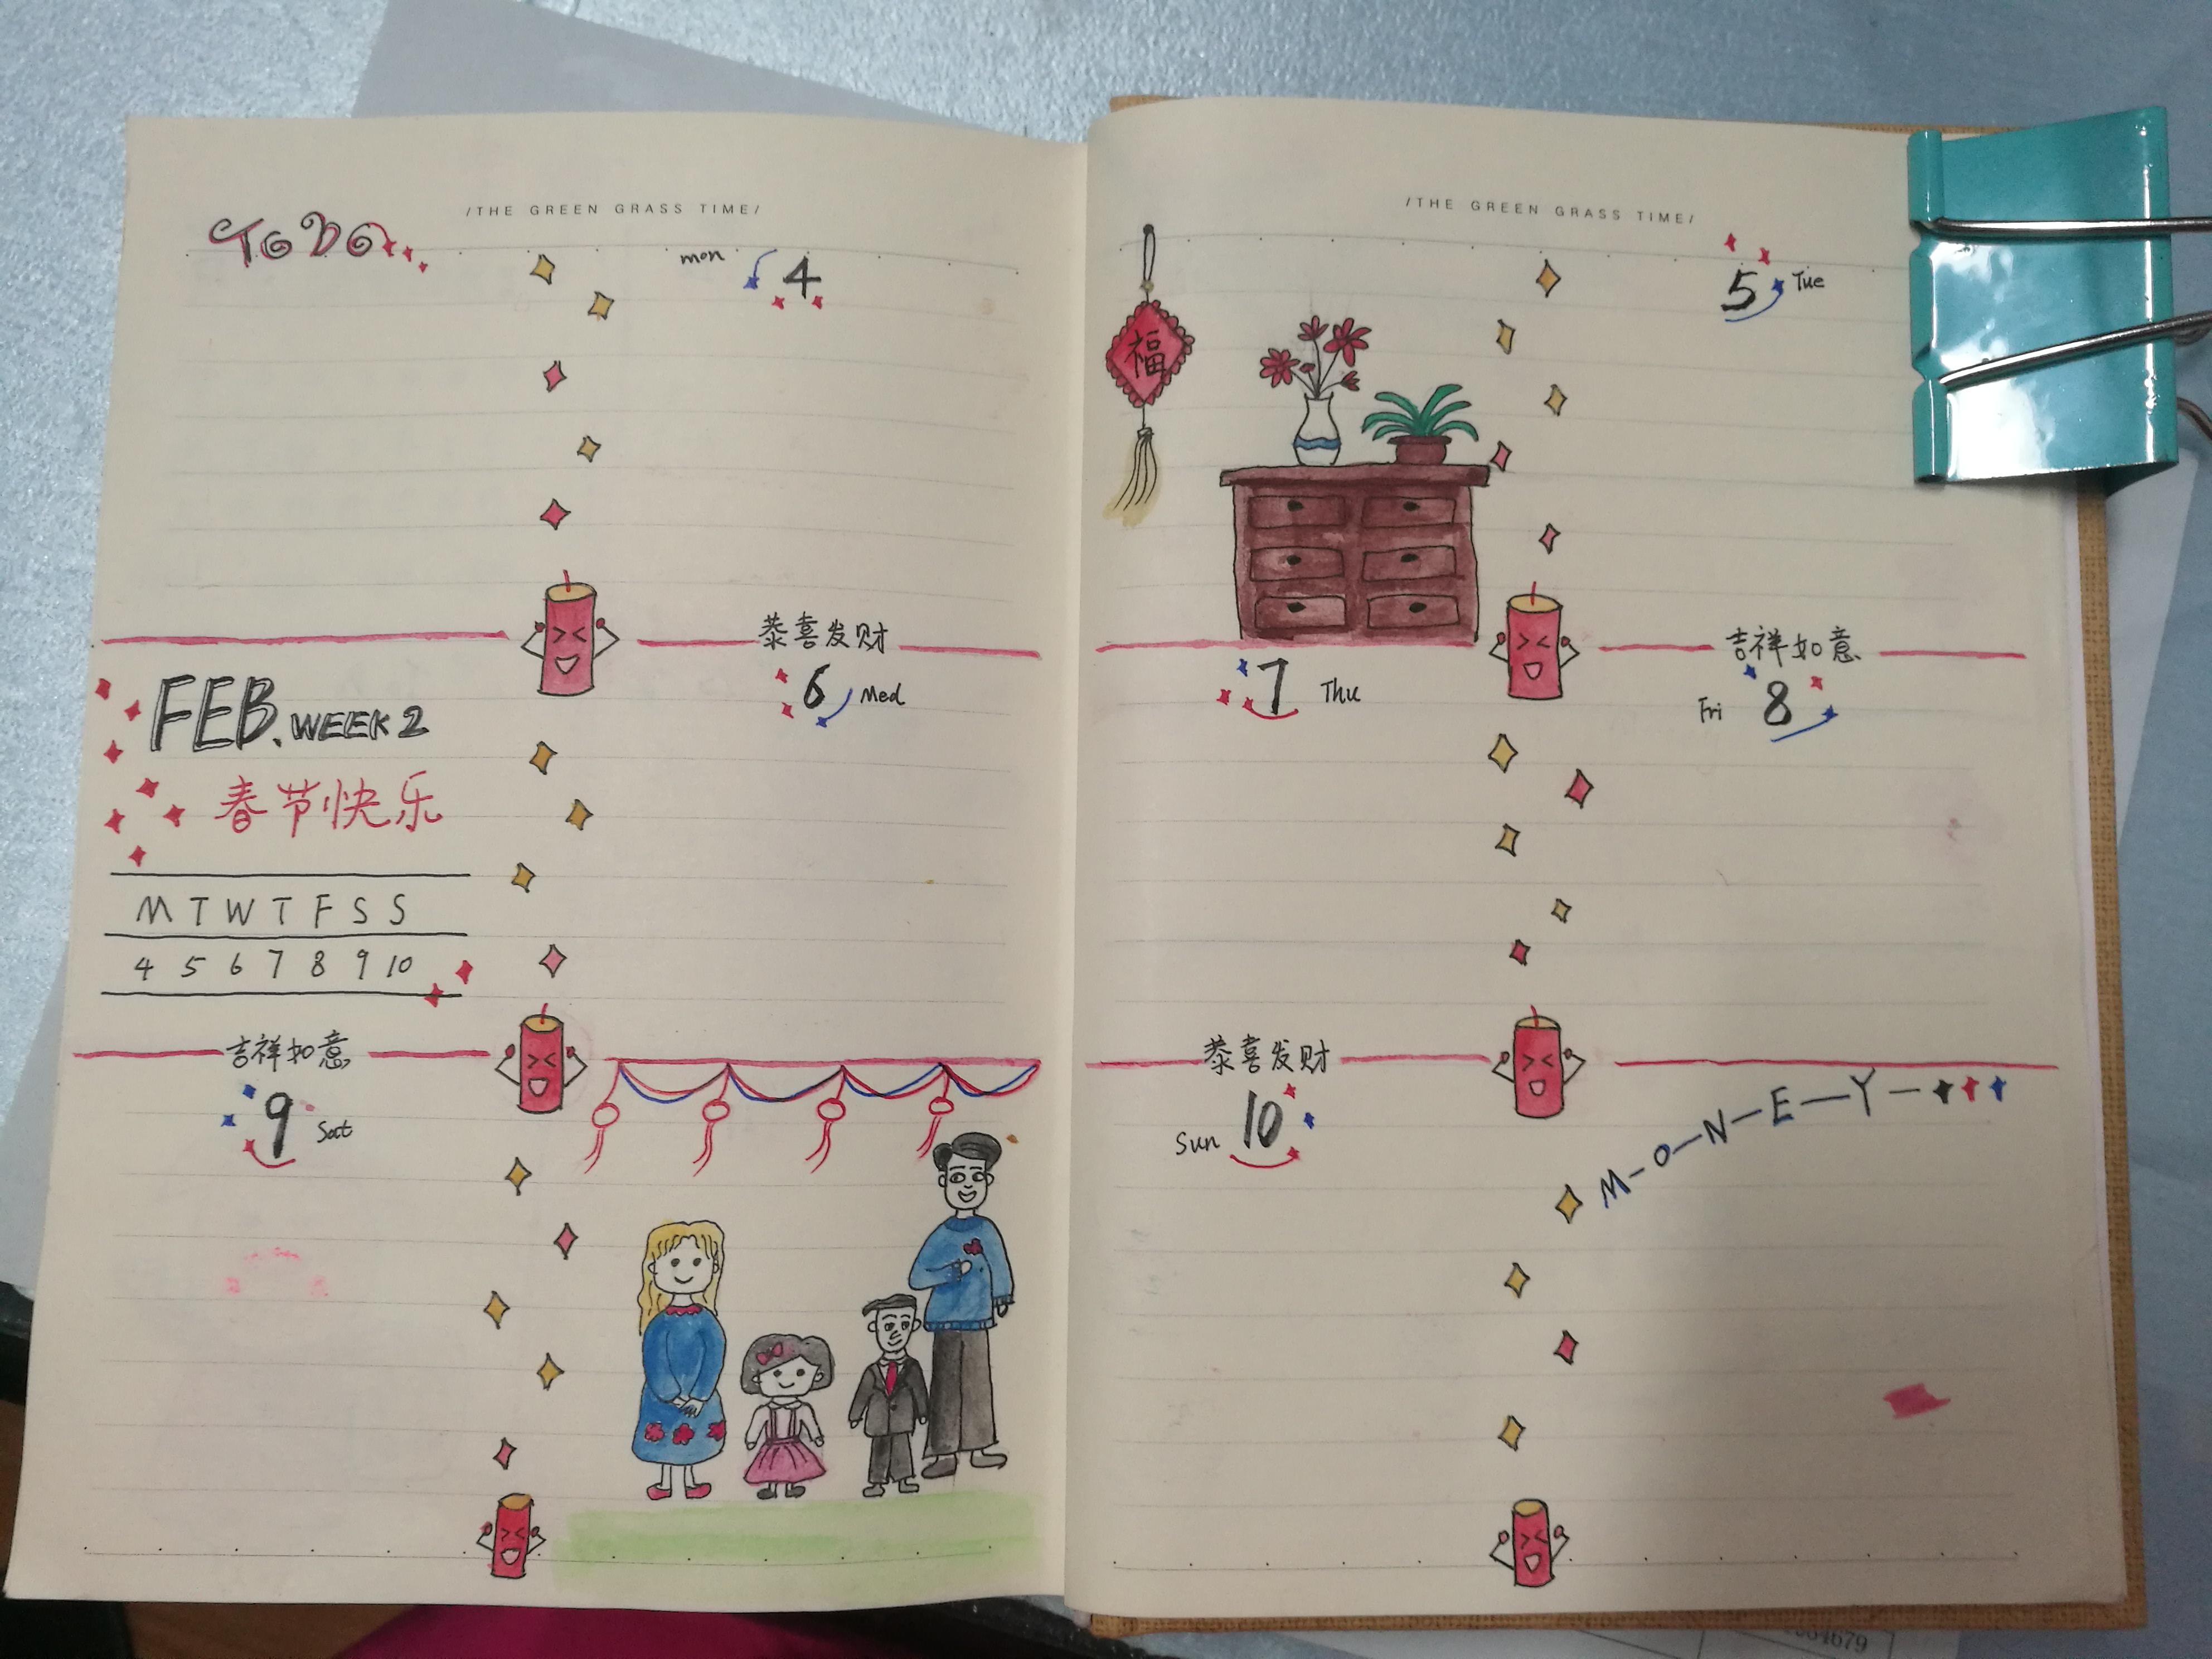 /THE GREEN GRASS TIME/
TO DO
mon 4
恭喜发财
6 Wed
FEB. WEEK 2
春节快乐
M T W T F S S
4 5 6 7 8 9 10
吉祥如意
9 Sat
/THE GREEN GRASS TIME/
5 Tue
福
7 Thu
吉祥如意
Fri 8
恭喜发财
Sun 10
M-O-N-E-Y-